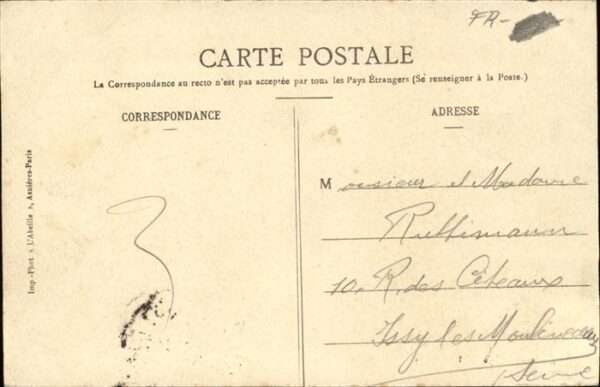 FR-
CARTE POSTALE
La Correspondance au recto n'est pas acceptée par tous les Pays Étrangers (Se renseigner à la Poste.)
CORRESPONDANCE
ADRESSE
Imp.-Phot « L'Abeille », Asnières-Paris
3
Monsieur et Madame
10. R. des Coteaux
Issy les Moulineaux
Seine